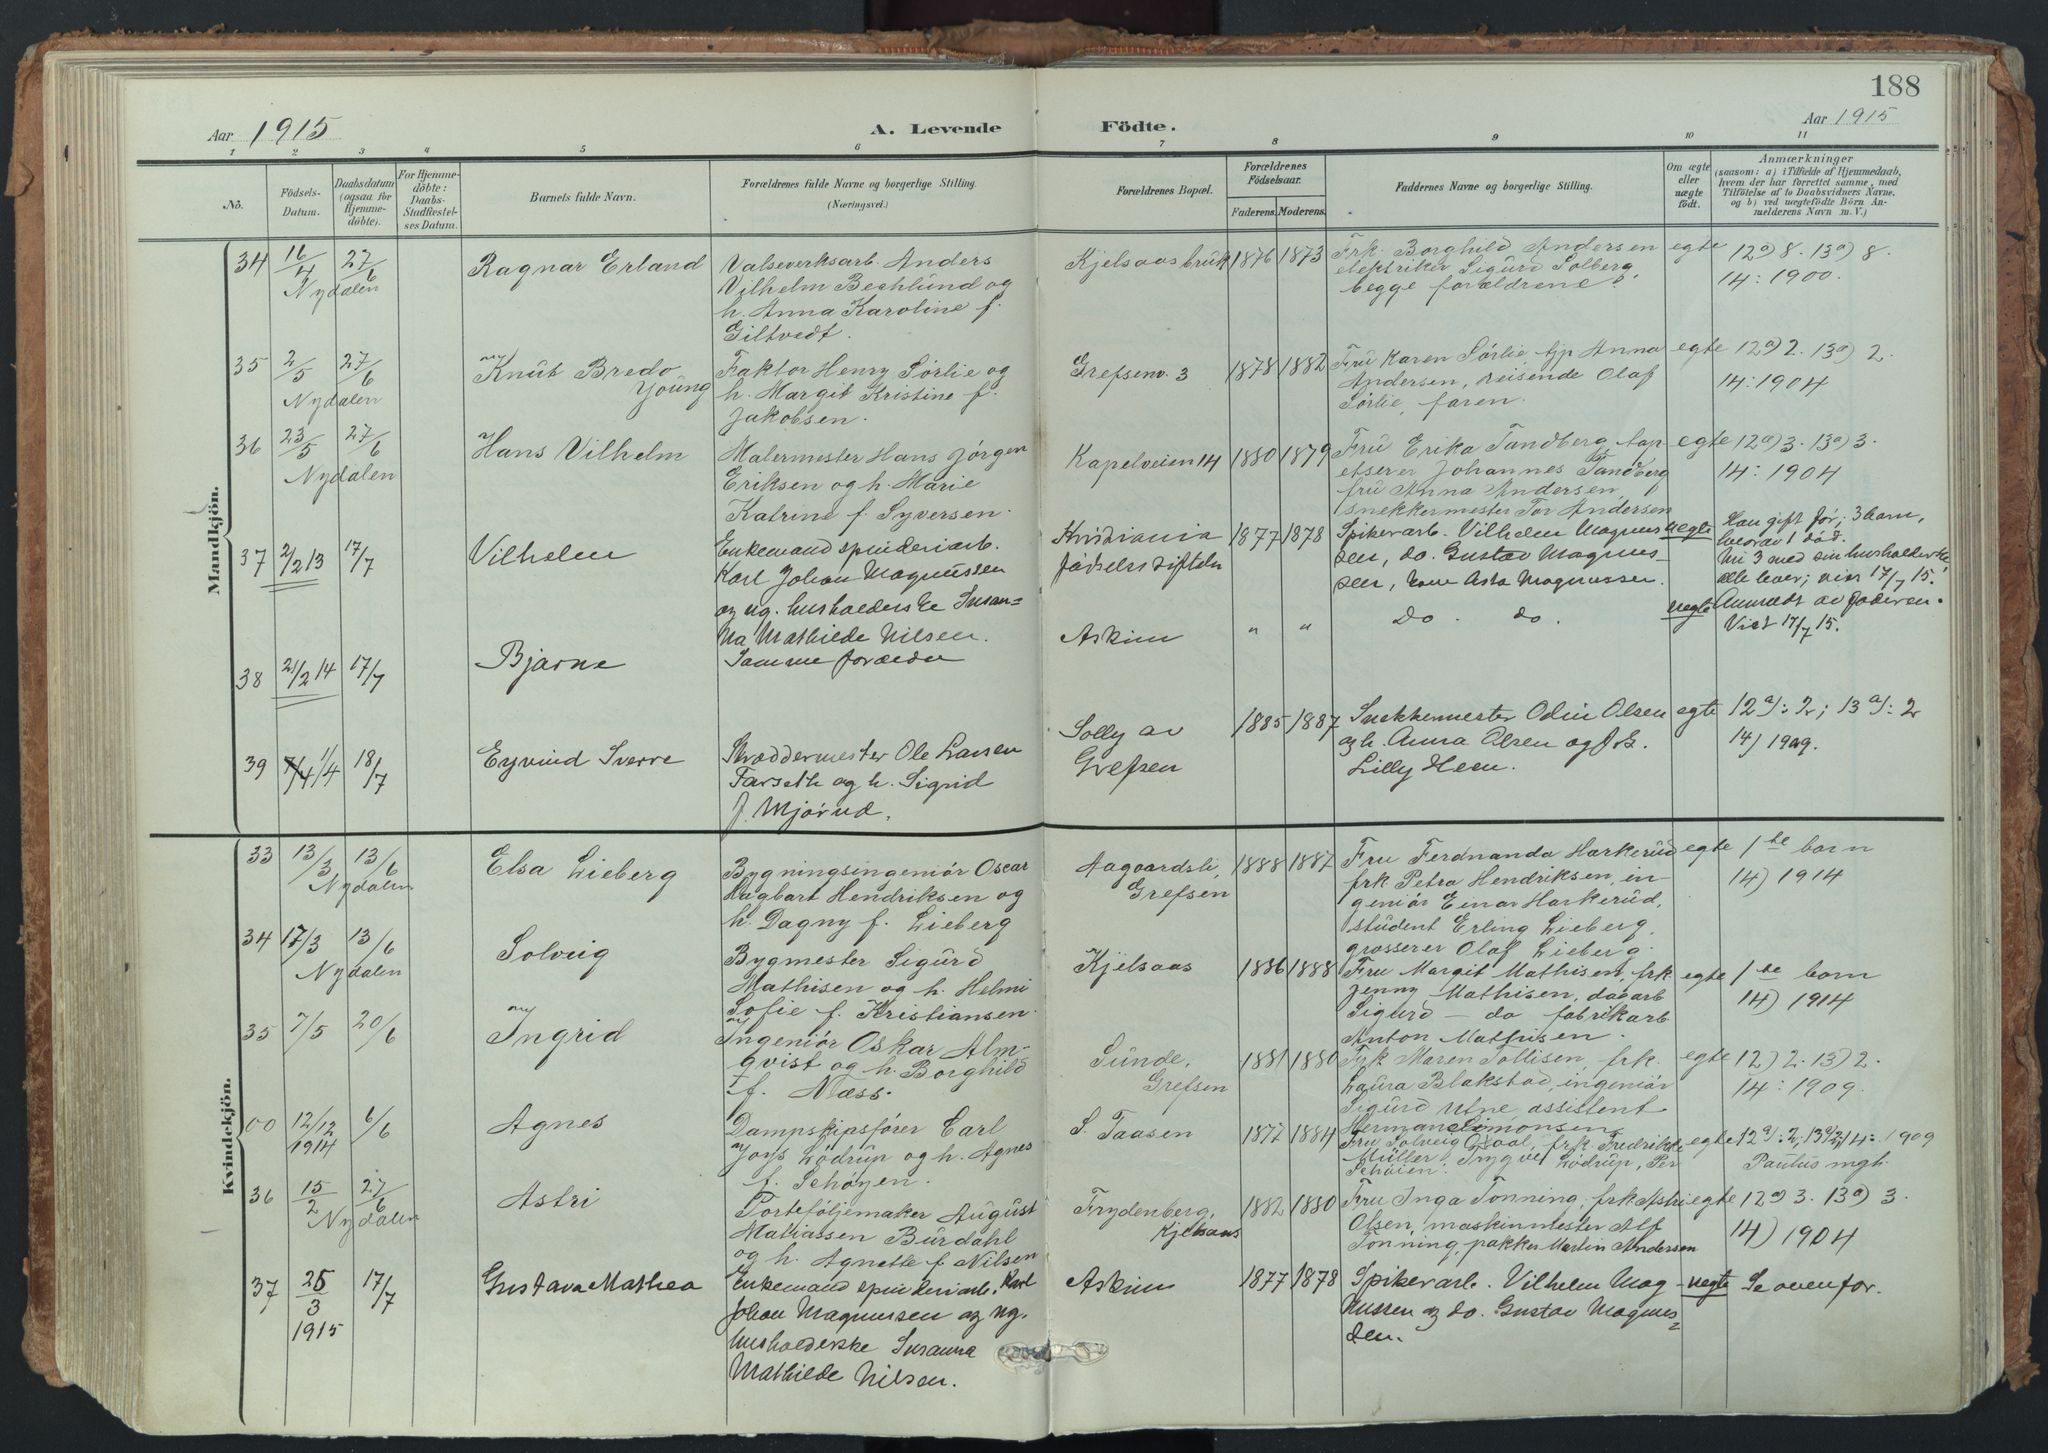 188
Aar 1915
A. Levende Födte.
Aar 1915
1 2 3 4 5 6 7 8 9 10 11
Nö.
Födsels-
Datum.
Daabsdatum
(ogsaa for
Hjemme-
döbte).
For Hjemme-
döbte:
Daabs-
Stadfæstel-
ses Datum.
Barnets fulde Navn.
Forældrenes fulde Navne og borgerlige Stilling.
(Næringsvei.)
Forældrenes Bopæl.
Forældrenes
Födselsaar.
Faderens. Moderens.
Faddernes Navne og borgerlige Stilling.
Om ægte
eller
uægte
födt.
Anmærkninger
(saasom: a) i Tilfælde af Hjemmedaab,
hvem der har forrettet samme, med
Tilföielse af to Daabsvidners Navne,
og b) ved uægtefödte Börn An-
melderens Navn m. V.)
Mandkjön.
34 16/4 27/6
Nydalen
Ragnar Erland
Valseverksarb. Anders
Vilhelm Bechlund og
h. Anna Karoline f.
Giltvedt.
Kjelsaas bruk
1876 1873
Frk. Borghild Andersen
elektriker Sigurd Solberg,
begge forældrene.
egte
12a) 8. 13a) 8.
14: 1900.
35 2/5 27/6
Nydalen
Knut Bredo
Young
Faktor Henry Sørlie og
h. Margit Kristine f.
Jakobsen.
Grefsenv. 3
1878 1882
Fru Karen Sørlie, tjp Anna
Andersen, reisende Olaf
Sørlie, faren.
egte
12a) 2. 13a) 2.
14: 1904
36 23/5 27/6
Nydalen
Hans Vilhelm
Malermester Hans Jørgen
Eriksen og h. Marie
Katrine f. Syversen.
Kapelveien 14
1880 1879
Fru Erika Tandberg, tap-
etserer Johannes Tandberg
fru Anna Andersen,
snekkermester Tor Andersen
egte
12a) 3. 13a) 3.
14: 1904
37 2/2 13 17/7
Vilhelm
Enkemand spinderiarb.
Karl Johan Magnussen
og ug. husholderske Susan-
na Mathilde Nilsen.
Kristiania
fødselsstiftelse
1877 1878
Spikerarb. Vilhelm Magnus-
sen, do. Gustav Magnus-
sen, Asta Magnussen.
uegte
Han gift før; 3 barn,
hvorav 1 død.
Nu 3 med sin husholderske
alle lever; viet 17/7 15.
38 21/2 14 17/7
Bjarne
Samme foreldre
Askim
" "
Do. do.
uegte
Anmeldt av faderen.
Viet 17/7 15.
39 1/4 18/7
Eyvind Sverre
Skræddermester Ole Larsen
Farseth og h. Sigrid
f. Mjørud.
Solly av
Grefsen
1885 1887
Snekkermester Odin Olsen
og h. Anna Olsen og frk.
Lilly Heen.
egte
12a): 2; 13a): 2
14) 1909.
Kvindekjön.
33 13/3 13/6
Nydalen
Elsa Lieberg
Bygningsingeniør Oscar
Hagbart Hendriksen og
h. Dagny f. Lieberg
Aagaardsli,
Grefsen
1888 1887
Fru Ferdnanda Harkerud
frk Petra Hendriksen, in-
geniør Einar Harkerud,
student Erling Lieberg,
grosserer Olaf Lieberg.
egte
1ste barn
14) 1914
34 17/3 13/6
Nydalen
Solveig
Bygmester Sigurd
Mathisen og h. Helmi
Sofie f. Kristiansen.
Kjelsaas
1886 1888
Fru Margit Mathisen, frk
Jenny Mathisen, dagarb
Sigurd — do fabrikarb.
Anton Mathisen.
egte
1ste barn
14) 1914
35 7/5 20/6
Ingrid
Ingeniør Oskar Alm-
qvist og h. Borghild
f. Næss.
Sunde,
Grefsen
1881 1880
Frk Maren Tollisen, frk.
Laura Blakstad, ingeniør
Sigurd Utne, assistent
Herman Simonsen
egte
12) 2. 13) 2.
14: 1909.
00 12/12 1914 6/6
Agnes
Dampskipsfører Carl
Lødrup og h. Agnes
f. Schøyen.
S. Taasen
1877 1884
Fru Solveig Oxaal, frk. Fredrikke
Müller, Trygve Lødrup, Per
Schøien.
egte
12a): 2; 13a) 2; 14: 1909
Paulus mgh.
36 15/2 27/6
Nydalen
Astri
Porteføljemaker August
Mathiassen Burdahl
og h. Agnette f. Nilsen
Frydenberg,
Kjelsaas
1882 1880
Fru Inga Tonning, frk Astri
Olsen, maskinmester Alf
Tonning, pakker Martin Andersen
egte
12a) 3. 13a) 3.
14) 1904
37 25/3 1915 17/7
Gustava Mathea
Enkemand spinderiarb. Karl
Johan Magnussen og ug.
husholderske Susanna
Mathilde Nilsen.
Askim
1877 1878
Spikerarb. Vilhelm Mag-
nussen og do. Gustav Magnus-
sen.
uegte
Se ovenfor.